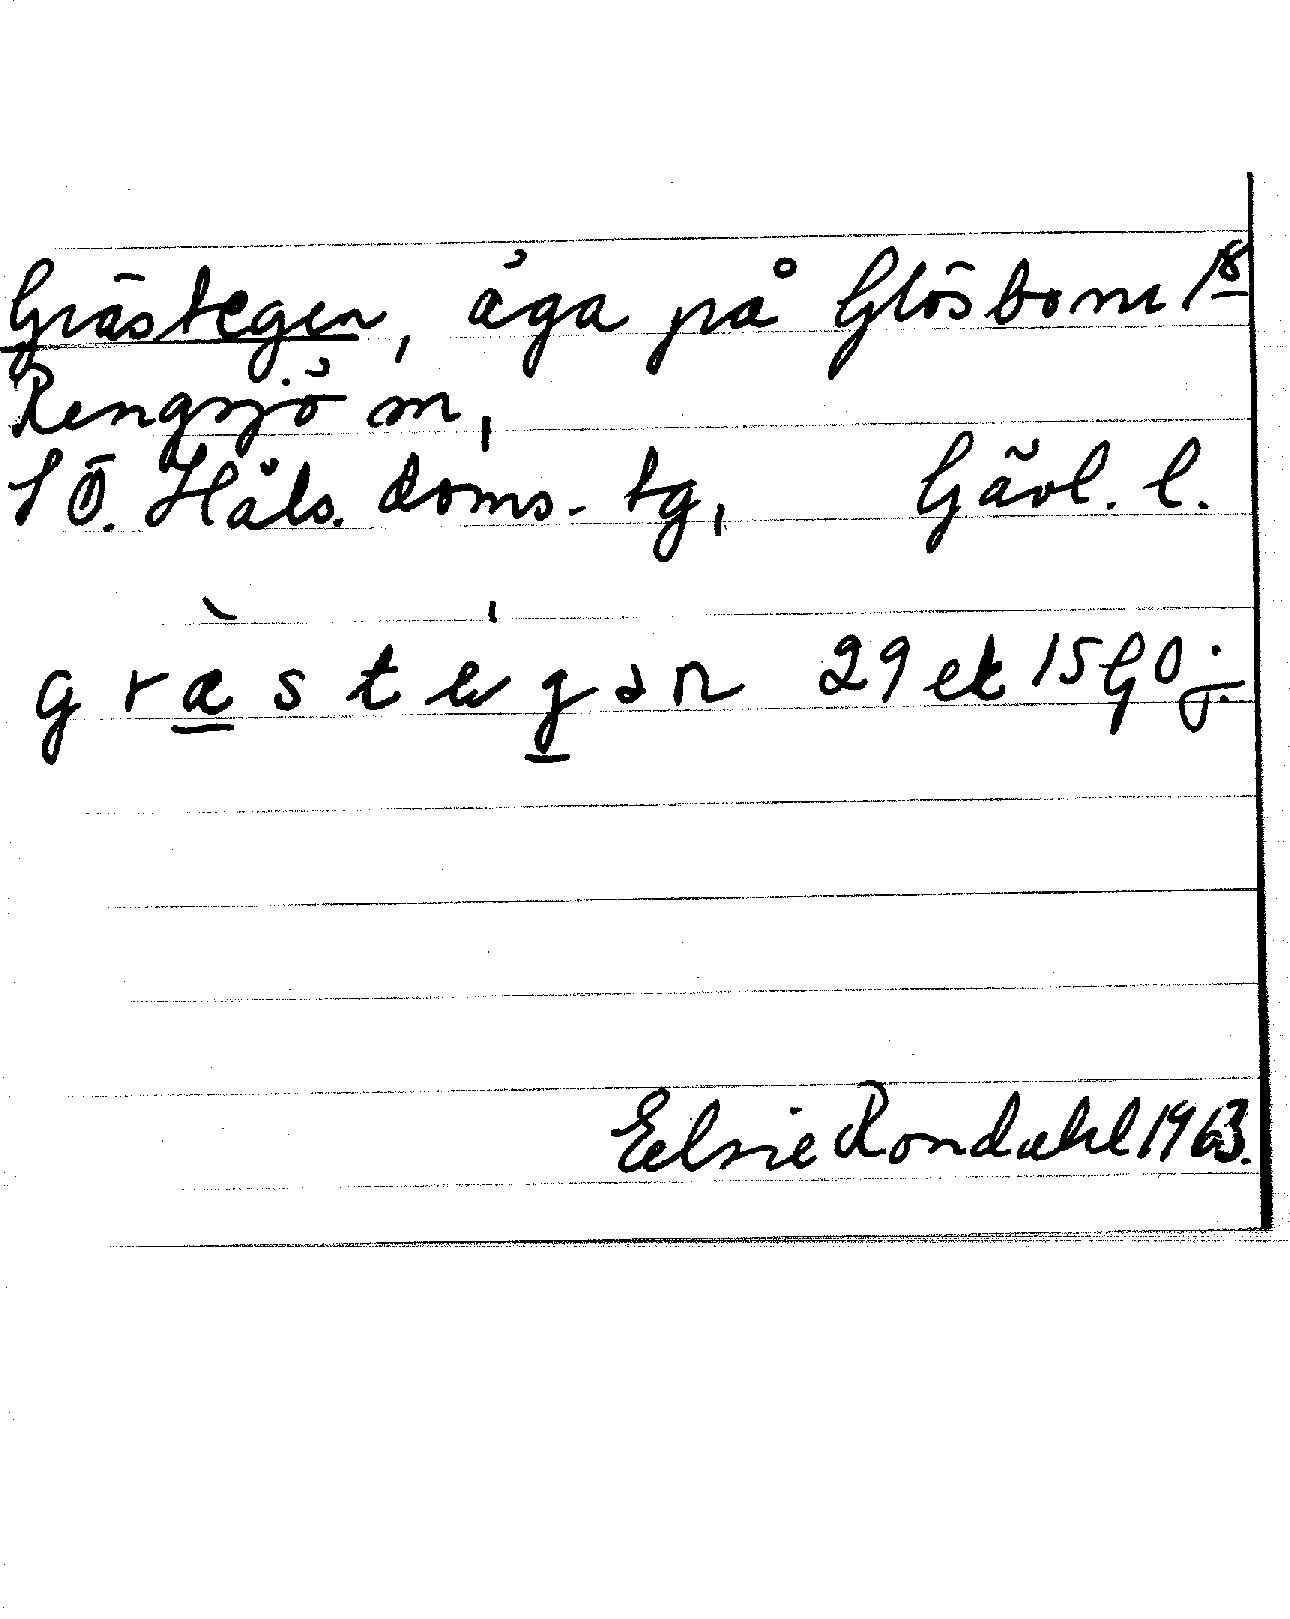 Grästegen, åga på Glösbom 18
Rengsjö sn,
SÖ. Häls. doms. tg, Gävl. l.
græ̀stégən 29 ek 15 GO j.
Eelsie Rondahl 1963.